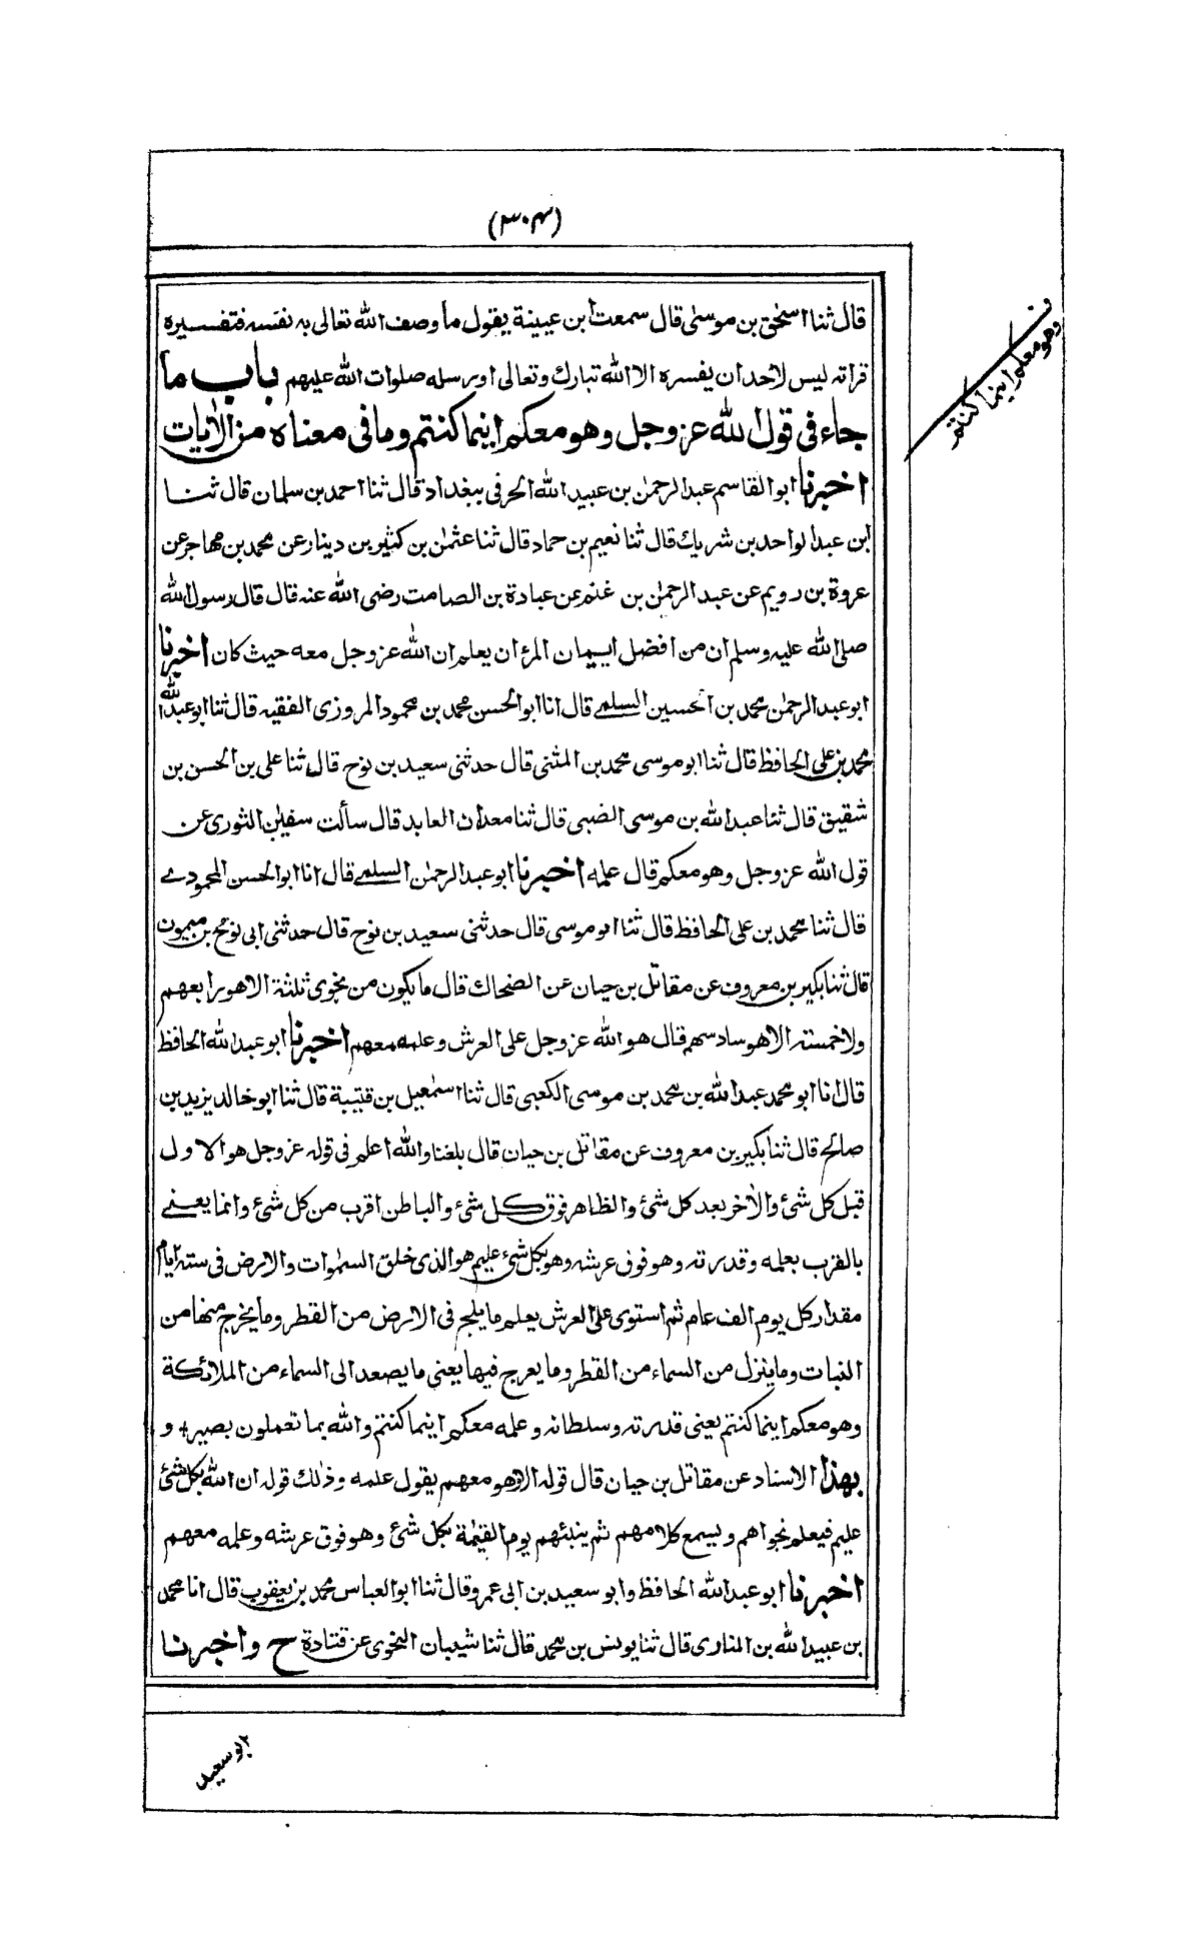 (۳۰۴)
ف
وهو معكم اينما كنتم
قال ثنا اسحٰق بن موسىٰ قال سمعت ابن عيينة يقول ما وصف الله تعالى به نفسه فتفسيره
قراته ليس لاحد ان يفسره الا الله تبارك وتعالى او رسله صلوات الله عليهم باب ما
جاء فى قول الله عز وجل وهو معكم اينما كنتم وما فى معناه من الاٰيات
اخبرنا ابو القاسم عبد الرحمٰن بن عبيد الله الحرفى ببغداد قال ثنا احمد بن سلمان قال ثنا
ابن عبد الواحد بن شريك قال ثنا نعيم بن حماد قال ثنا عثمٰن بن كثير بن دينار عن محمد بن مهاجر عن
عروة بن رويم عن عبد الرحمٰن بن غنم عن عبادة بن الصامت رضى الله عنه قال قال رسول الله
صلى الله عليه وسلم ان من افضل ايمان المرٔ ان يعلم ان الله عز وجل معه حيث كان اخبرنا
ابو عبد الرحمٰن محمد بن الحسين السلمى قال انا ابو الحسن محمد بن محمود المروزى الفقيه قال ثنا ابو عبد الله
محمد بن على الحافظ قال ثنا ابو موسى محمد بن المثنى قال حدثنى سعيد بن نوح قال ثنا على بن الحسن بن
شقيق قال ثنا عبد الله بن موسى الضبى قال ثنا معدان العابد قال سألت سفيٰن الثورى عن
قول الله عز وجل وهو معكم قال علمه اخبرنا ابو عبد الرحمٰن السلمى قال انا ابو الحسن المحمودى
قال ثنا محمد بن على الحافظ قال ثنا ابو موسى قال حدثنى سعيد بن نوح قال حدثنى ابى نوح بن ميمون
قال ثنا بكير بن معروف عن مقاتل بن حيان عن الضحاك قال ما يكون من نجوى ثلثة الا هو رابعهم
ولا خمسته الا هو سادسهم قال هو الله عز وجل على العرش وعلمه معهم اخبرنا ابو عبد الله الحافظ
قال انا ابو محمد عبد الله بن محمد بن موسى الكعبى قال ثنا اسمٰعيل بن قتيبة قال ثنا ابو خالد يزيد بن
صالح قال ثنا بكير بن معروف عن مقاتل بن حيان قال بلغنا والله اعلم فى قوله عز وجل هو الاول
قبل كل شئ والاٰخر بعد كل شئ والظاهر فوق كل شئ والباطن اقرب من كل شئ وانما يعنى
بالقرب بعلمه وقدرته وهو فوق عرشه وهو بكل شئ عليم هو الذى خلق السمٰوات والارض فى ستة ايام
مقدار كل يوم الف عام ثم استوى على العرش يعلم ما يلج فى الارض من القطر وما يخرج منها من
النبات وما ينزل من السماء من القطر وما يعرج فيها يعنى ما يصعد الى السماء من الملائكة
وهو معكم اينما كنتم يعنى قدرته وسلطانه وعلمه معكم اينما كنتم والله بما تعملون بصير و
بهذا الاسناد عن مقاتل بن حيان قال قوله الا هو معهم يقول علمه وذٰلك قوله ان الله بكل شئ
عليم فيعلم نجواهم ويسمع كلامهم ثم ينبئهم يوم القيٰمة بكل شئ وهو فوق عرشه وعلمه معهم
اخبرنا ابو عبد الله الحافظ وابو سعيد بن ابى عمرو قال ثنا ابو العباس محمد بن يعقوب قال انا محمد
بن عبيد الله بن المنادى قال ثنا يونس بن محمد قال ثنا شيبان النحوى عن قتادة ح واخبرنا
ابو سعيد